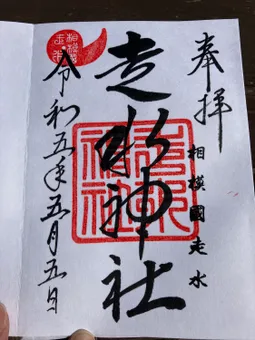 奉拝
相模國走水
走水神社
令和五年五月五日